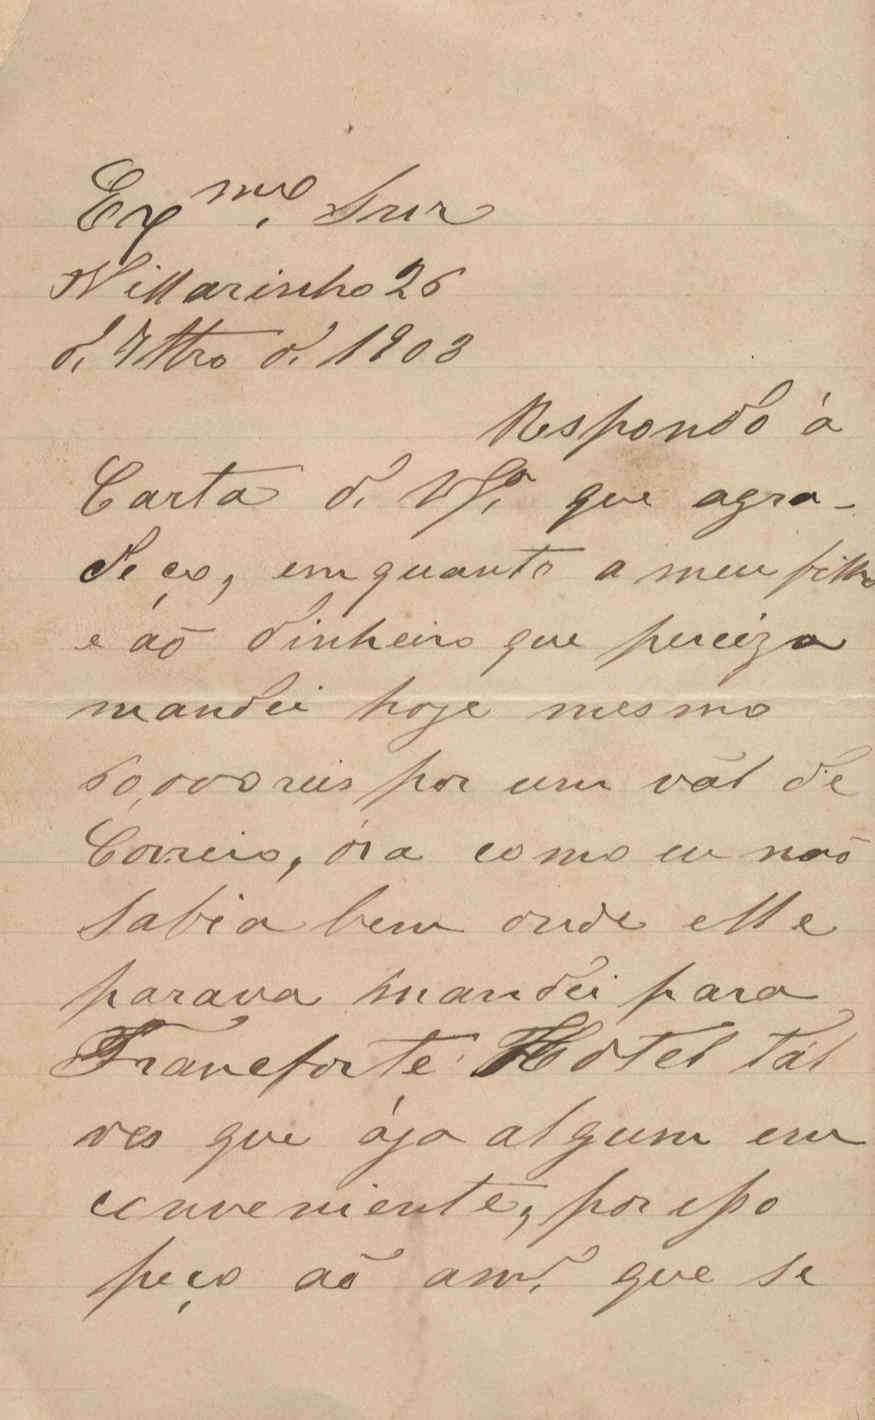 Exmo. Snr
Villarinho 26
d. 7bro d. 1903
Respondo á
Carta d. V Sa. que agra-
deço, emquanto a meu filho
e áo dinheiro que perciza
mandei hoje mesmo
60,000 reis por um vál de
Correio, óra como eu não
sabia bem onde elle
parava mandei para
Francforte Hotel tál
ves que ája algum em
conveniente, por isso
peço aõ amo. que se